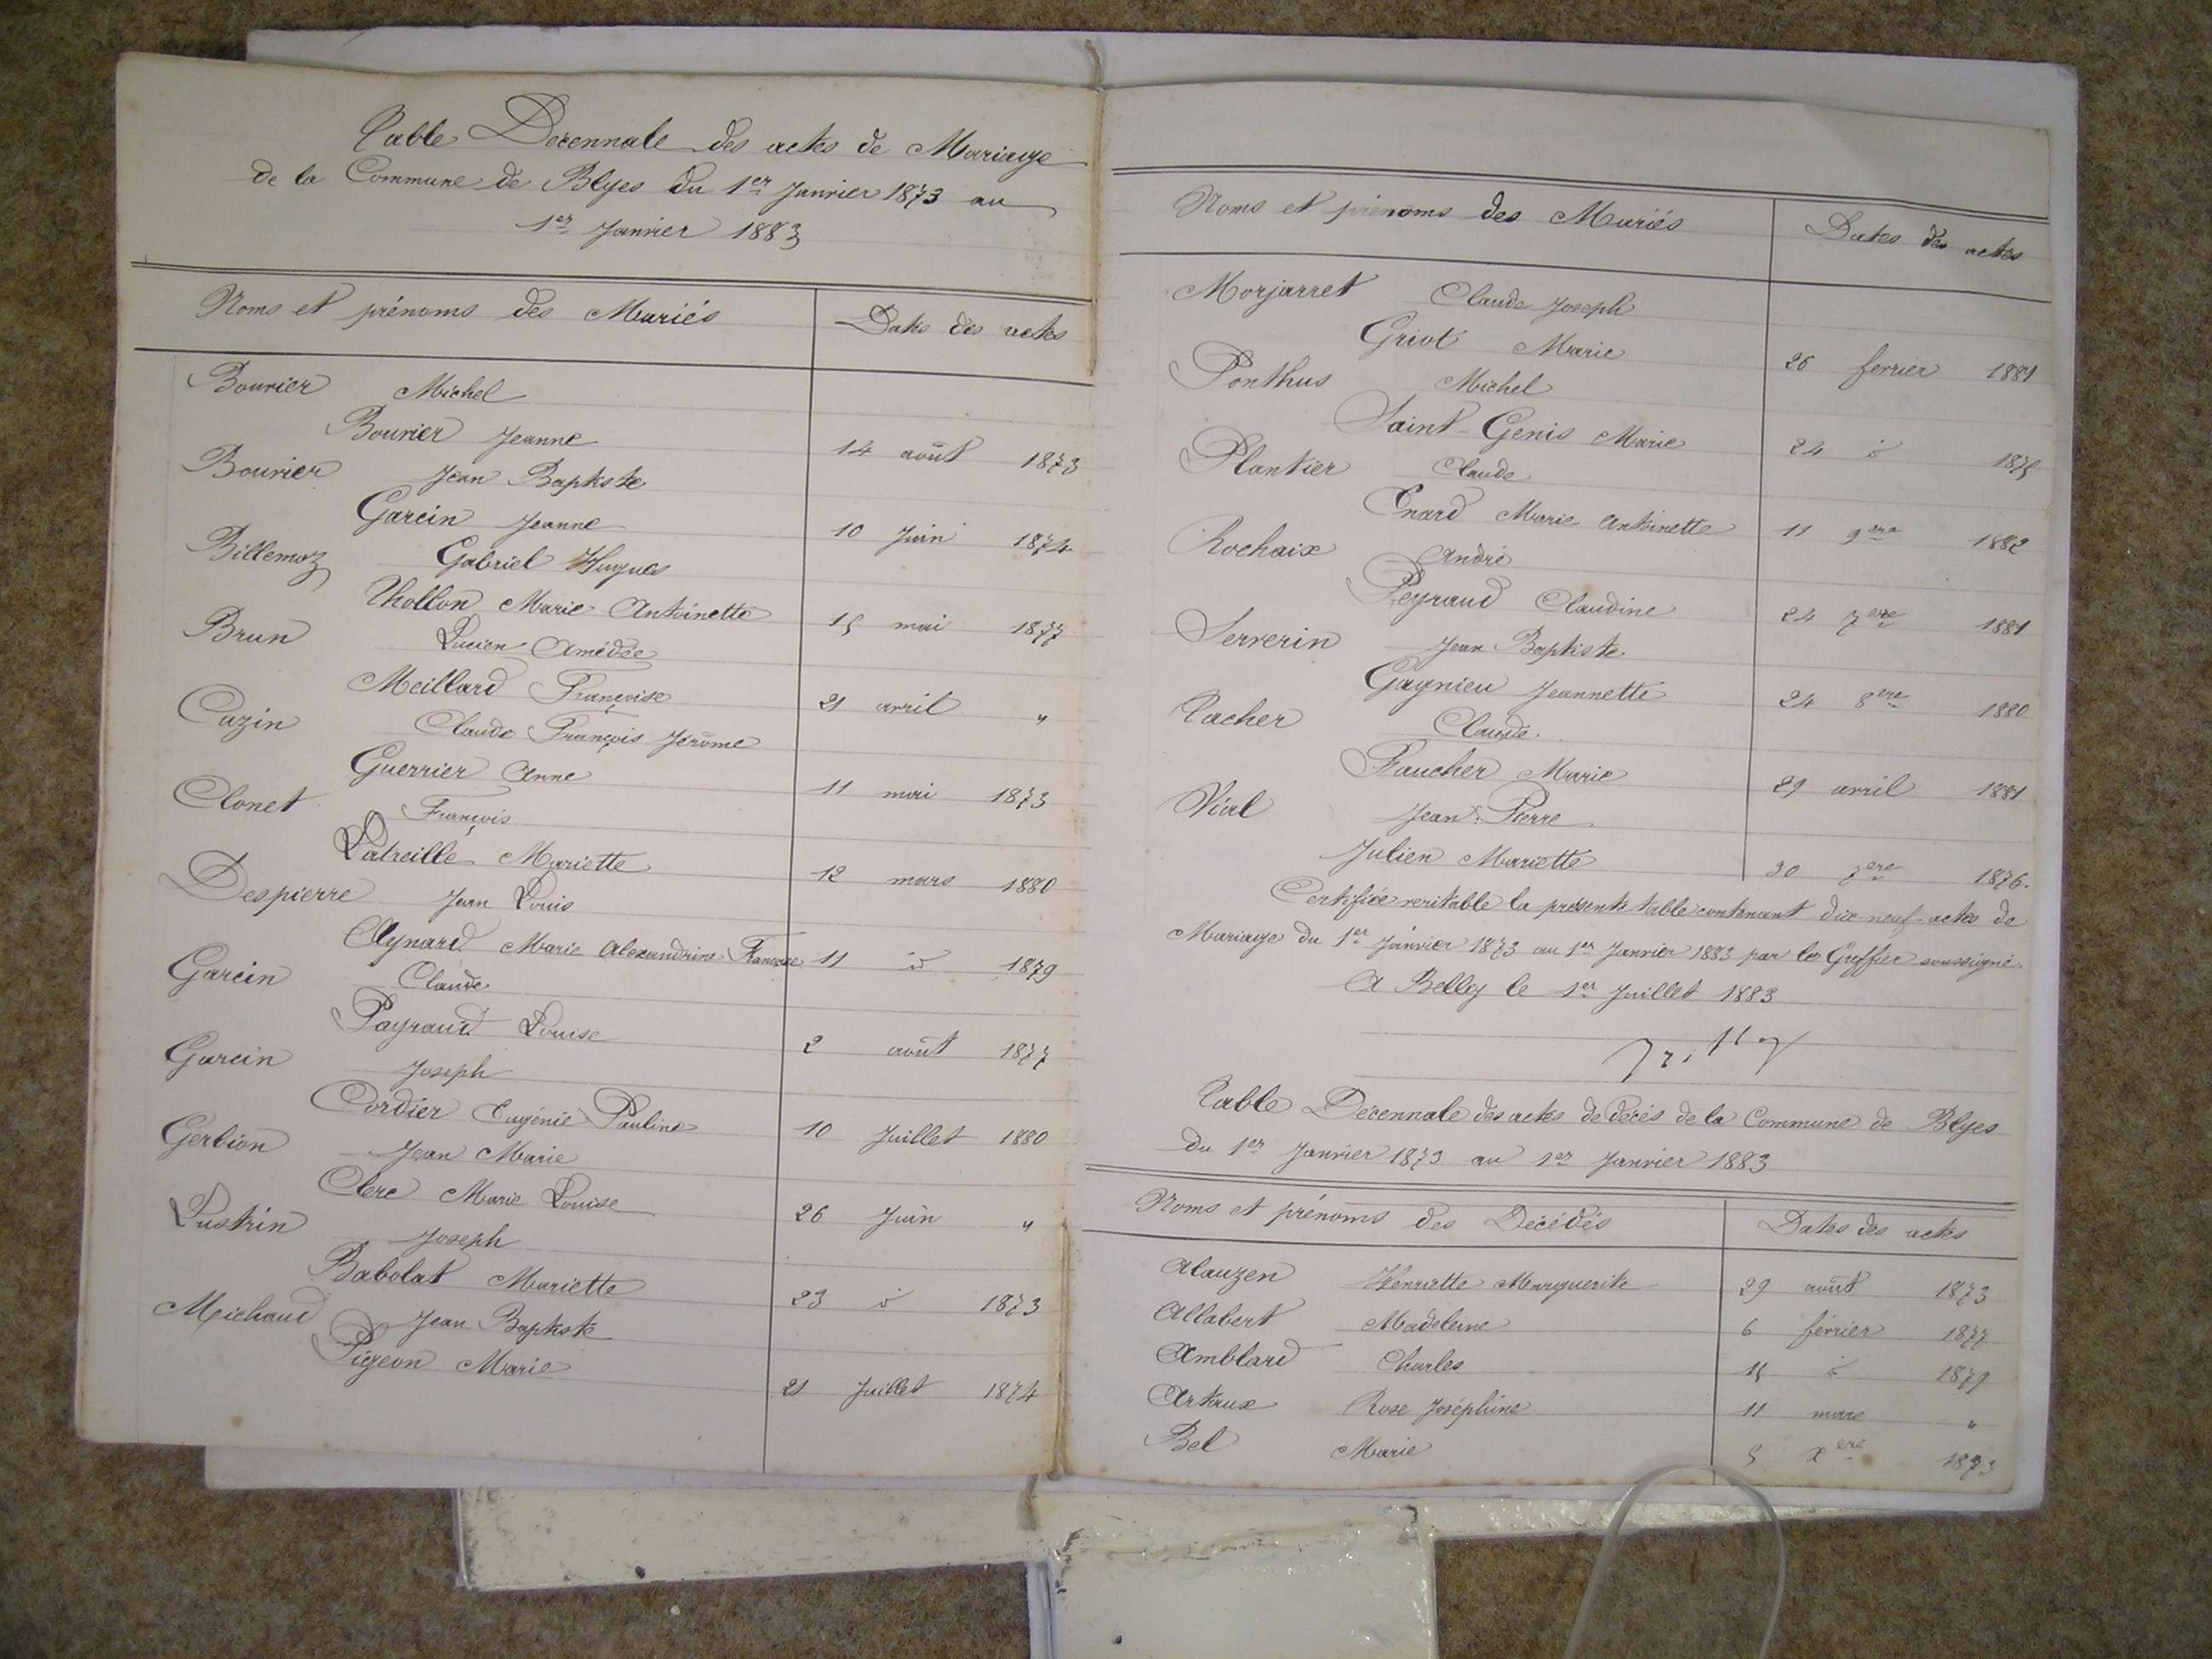 Table Décennale des actes de Mariage
de la Commune de Blyes du 1er Janvier 1873 au
1er Janvier 1883
Noms et prénoms des Mariés Dates des actes
Bouvier Michel
Bouvier Jeanne 14 août 1873
Bouvier Jean Baptiste
Garcin Jeanne 10 Juin 1874
Billemaz Gabriel Hugues
Thollon Marie Antoinette 15 mai 1877
Brun Lucien Amédée
Meillard Françoise 21 avril "
Cazin Claude François Jérôme
Guerrier Anne 11 mai 1873
Clonet François
Latreille Mariette 12 mars 1880
Despierre Jean Louis
Aynard Marie Alexandrine Françoise 11 d° 1879
Garcin Claude
Payraud Louise 2 août 1877
Garcin Joseph
Cordier Eugénie Pauline 10 Juillet 1880
Gerbion Jean Marie
Clerc Marie Louise 26 Juin "
Lustrin Joseph
Babolat Mariette 23 d° 1873
Michaud Jean Baptiste
Pigeon Marie 21 Juillet 1874
Noms et prénoms des Mariés Dates des actes
Morjarret Claude Joseph
Griot Marie 26 fevrier 1881
Ponthus Michel
Saint-Genis Marie 24 d° 1875
Plantier Claude
Enard Marie Antoinette 11 9bre 1882
Rochaix André
Peyraud Claudine 24 7bre 1881
Serverin Jean Baptiste
Gagnieu Jeannette 24 8bre 1880
Tacher Claude
Faucher Marie 29 avril 1881
Vial Jean Pierre
Julien Mariette 30 7bre 1876.
Certifiée veritable la présente table contenant dix-neuf actes de
Mariage du 1er Janvier 1873 au 1er Janvier 1883 par le Greffier soussigné
A Belley le 1er Juillet 1883
Table Décennale des actes de Décés de la Commune de Blyes
du 1er Janvier 1873 au 1er Janvier 1883
Noms et prénoms des Décédés Dates des actes
Alauzen Henriette Marguerite 29 août 1873
Allabert Madeleine 6 février 1877
Amblard Charles 15 d° 1879
Artaux Rose Joséphine 11 mars "
Bel Marie 5 xbre 1873